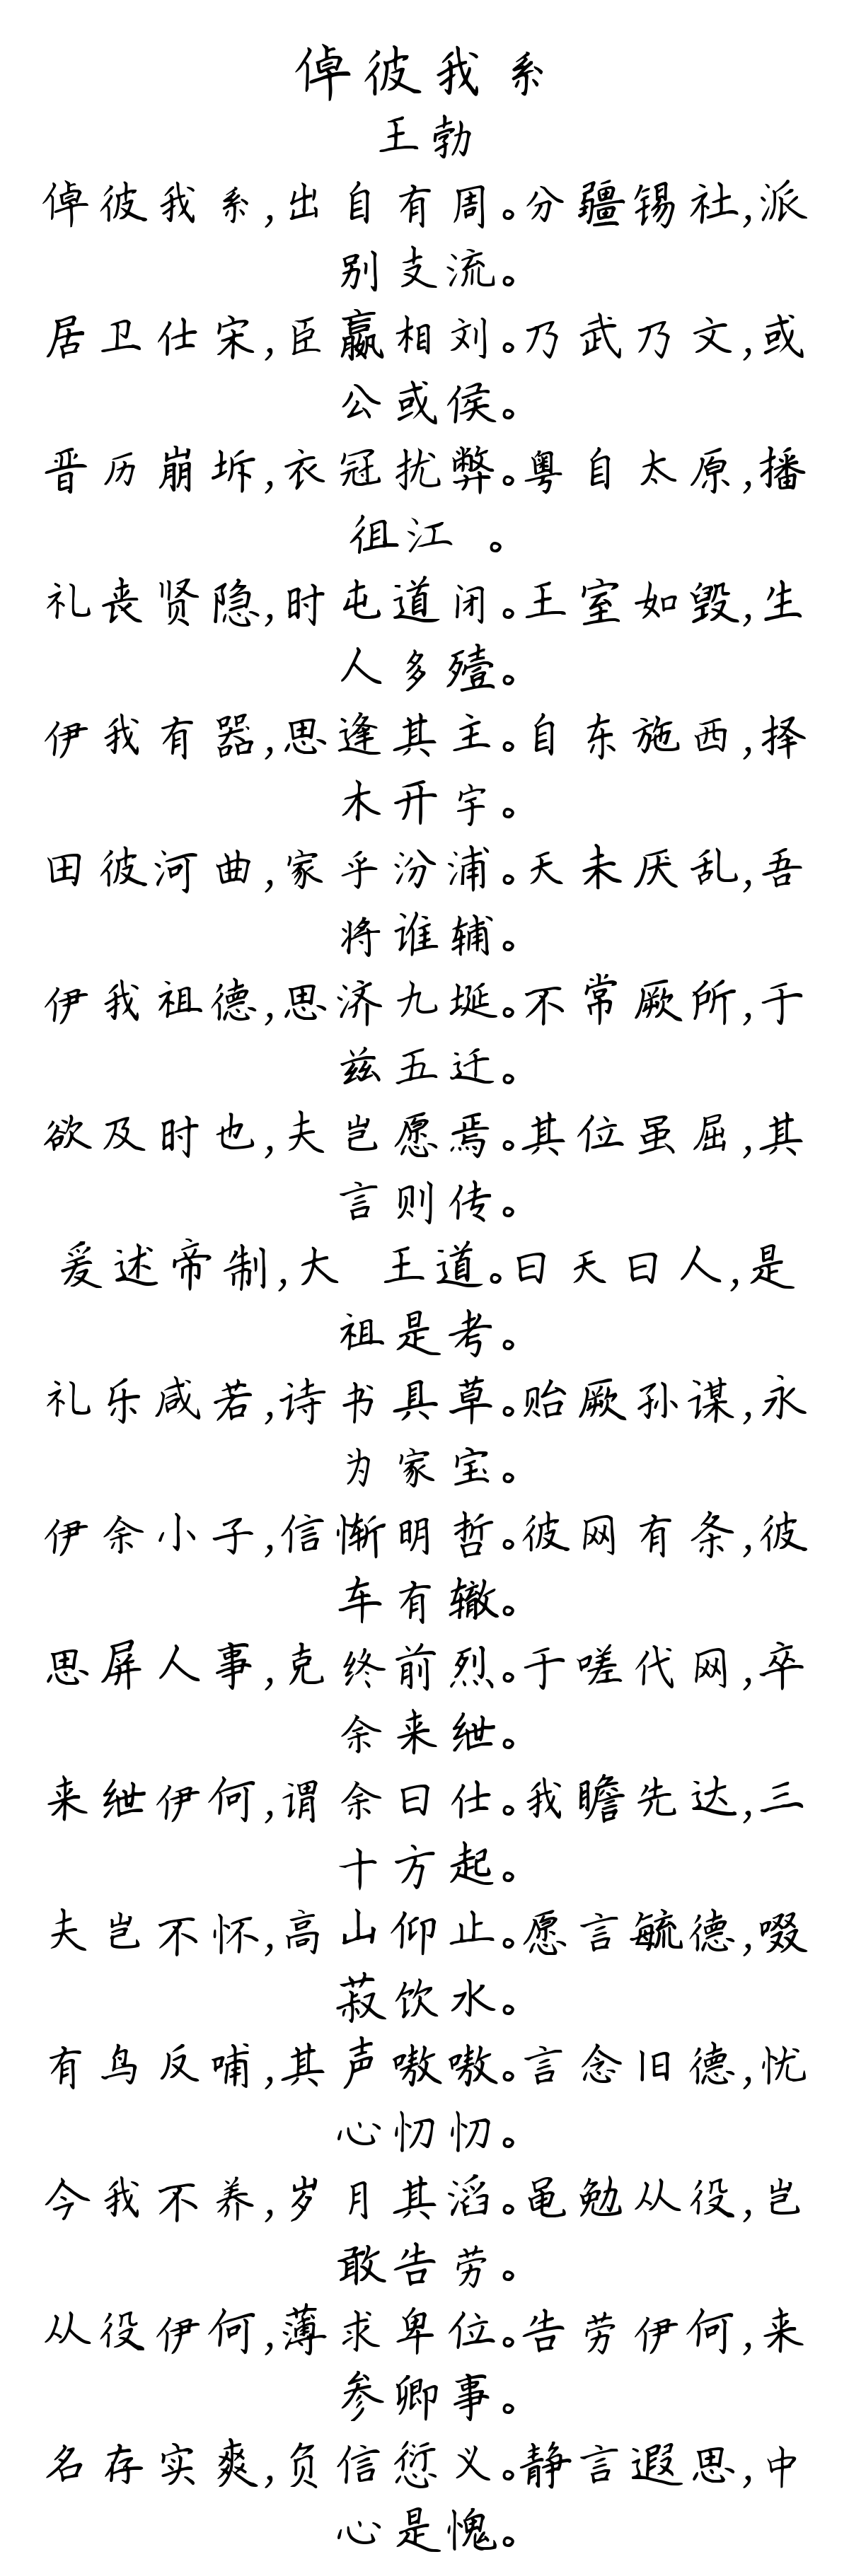 倬彼我系
王勃
倬彼我系,出自有周。分疆锡社,派
别支流。
居卫仕宋,臣嬴相刘。乃武乃文,或
公或侯。
晋历崩坼,衣冠扰弊。粤自太原,播
徂江 。
礼丧贤隐,时屯道闭。王室如毁,生
人多殪。
伊我有器,思逢其主。自东施西,择
木开宇。
田彼河曲,家乎汾浦。天未厌乱,吾
将谁辅。
伊我祖德,思济九埏。不常厥所,于
兹五迁。
欲及时也,夫岂愿焉。其位虽屈,其
言则传。
爰述帝制,大 王道。曰天曰人,是
祖是考。
礼乐咸若,诗书具草。贻厥孙谋,永
为家宝。
伊余小子,信惭明哲。彼网有条,彼
车有辙。
思屏人事,克终前烈。于嗟代网,卒
余来绁。
来绁伊何,谓余曰仕。我瞻先达,三
十方起。
夫岂不怀,高山仰止。愿言毓德,啜
菽饮水。
有鸟反哺,其声嗷嗷。言念旧德,忧
心忉忉。
今我不养,岁月其滔。黾勉从役,岂
敢告劳。
从役伊何,薄求卑位。告劳伊何,来
参卿事。
名存实爽,负信愆义。静言遐思,中
心是愧。